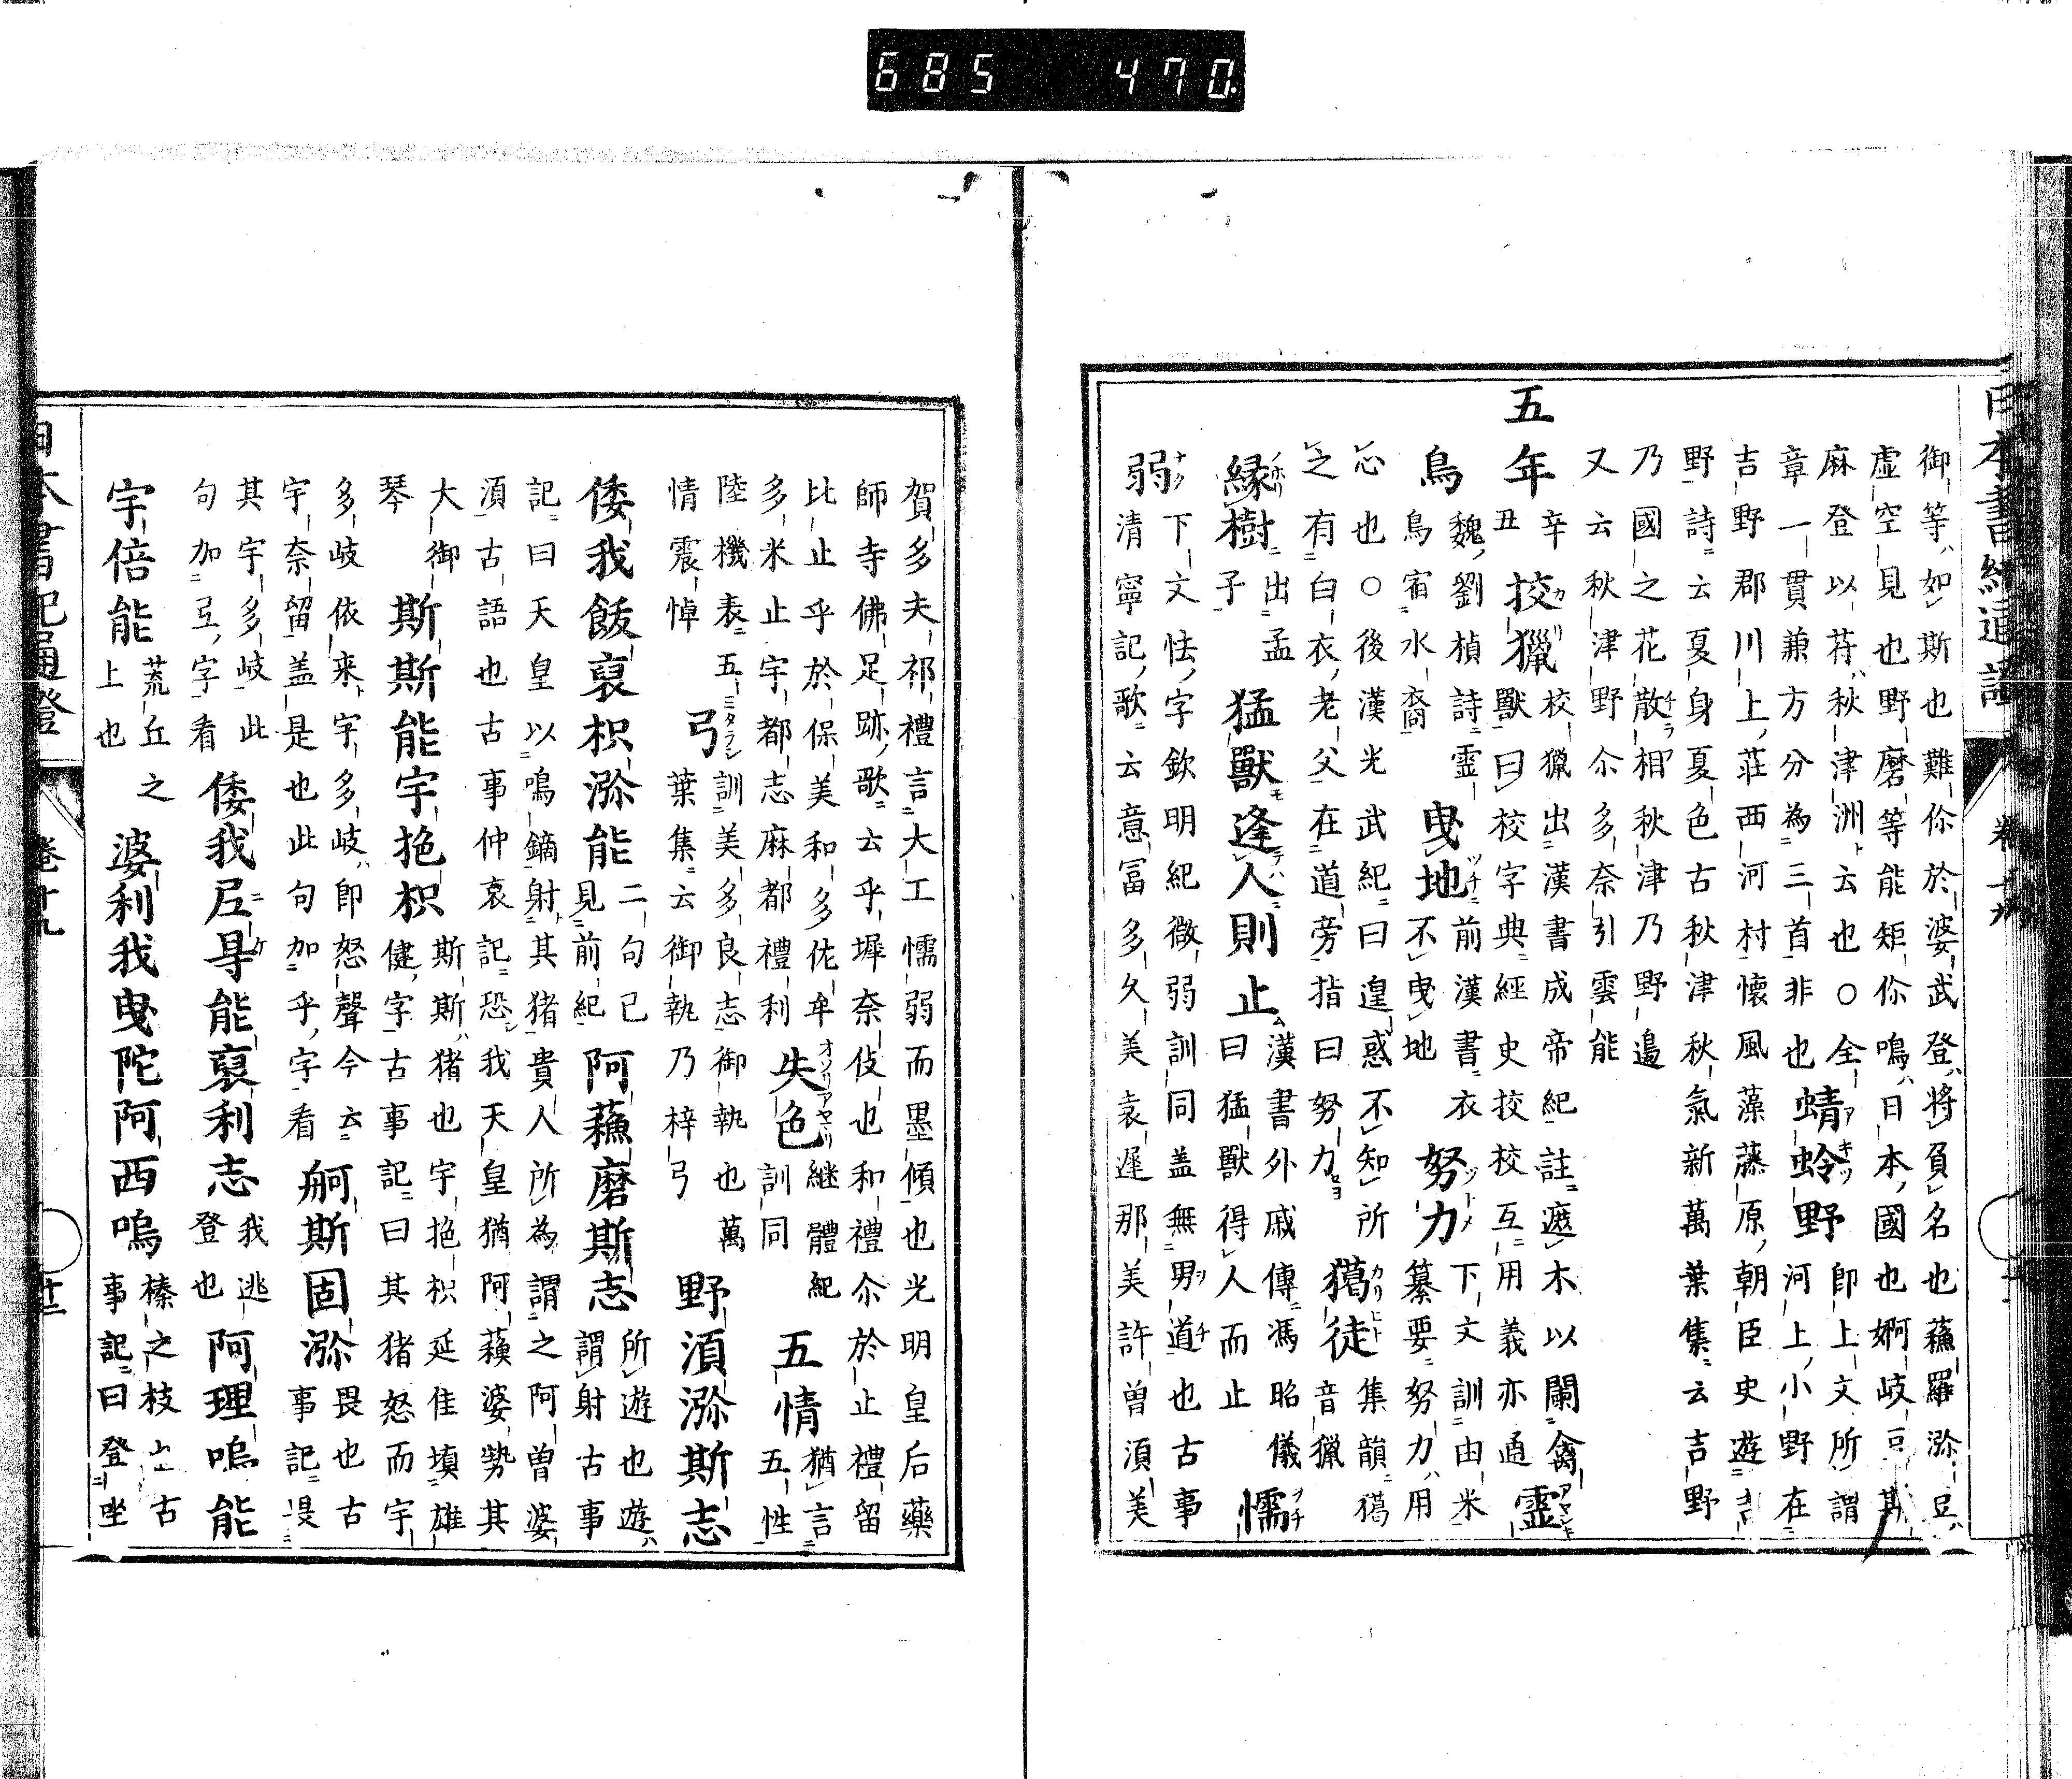 日本書紀通證 卷十九
御等如斯也難你於婆武登將負名也蘓羅瀰豆
虛空見也野磨等能矩你嗚日本國也婀岐豆斯
麻登以苻秋津洲云也○全
章一貫兼方分為三首非也 蜻蛉野 即上文所謂河上小野在
吉野郡川上莊西河村懷風藻藤原朝臣史遊吉
野詩云夏身夏色古秋津秋氣新萬葉集云吉野
乃國之花散相秋津乃野邊
又云秋津野尒多奈引雲能
五年 辛丑 挍獵 校獵出漢書成帝紀註遮木以闌禽獸曰校字典經史挍校互用義亦通 靈
鳥 魏劉楨詩靈鳥宿水裔 曳地 前漢書衣不曳地 努力 下文訓由米纂要努力用
心也○後漢光武紀曰遑惑不知所
之有白衣老父在道旁指曰努力 獦徒 集韻獦音獵
縁樹 出孟子 猛獸逢人則止 漢書外戚傳馮昭儀曰猛獸得人而止 懦
弱 下文怯字欽明紀微弱訓同盖無男道也古事
清寧記歌云意冨多久美袁遅那美許曽湏美
賀多夫祁禮言大工懦弱而墨傾也光明皇后藥
師寺佛足跡歌云乎墀奈伎也和禮尒於止禮留
比止乎於保美和多佐牟
多米止宇都志麻都禮利 失色 継體紀訓同 五情 猶言五性
陸機表五情震悼 弓 訓美多良志御執也萬葉集云御執乃梓弓 野湏瀰斯志
倭我飯裒枳瀰能 二句已見前紀 阿蘓磨斯志 所遊也遊所謂射古事
記曰天皇以鳴鏑射其猪貴人所為謂之阿曽婆
湏古語也古事仲哀記恐我天皇猶阿蘓婆勢其
大御琴 斯斯能宇拖枳 斯斯猪也宇拖枳延佳填雄健字古事記曰其猪怒而宇
多岐依来字多岐即怒聲今云
宇奈留盖是也此句加乎字看 舸斯固瀰 畏也古事記
其宇多岐此
句加弖字看 倭我尼㝵能裒利志 我逃登也 阿理嗚能
宇倍能 荒丘之上也 婆利我曳陀阿西嗚 榛之枝上古事記曰登坐
日本書紀通證 卷十九
685 470